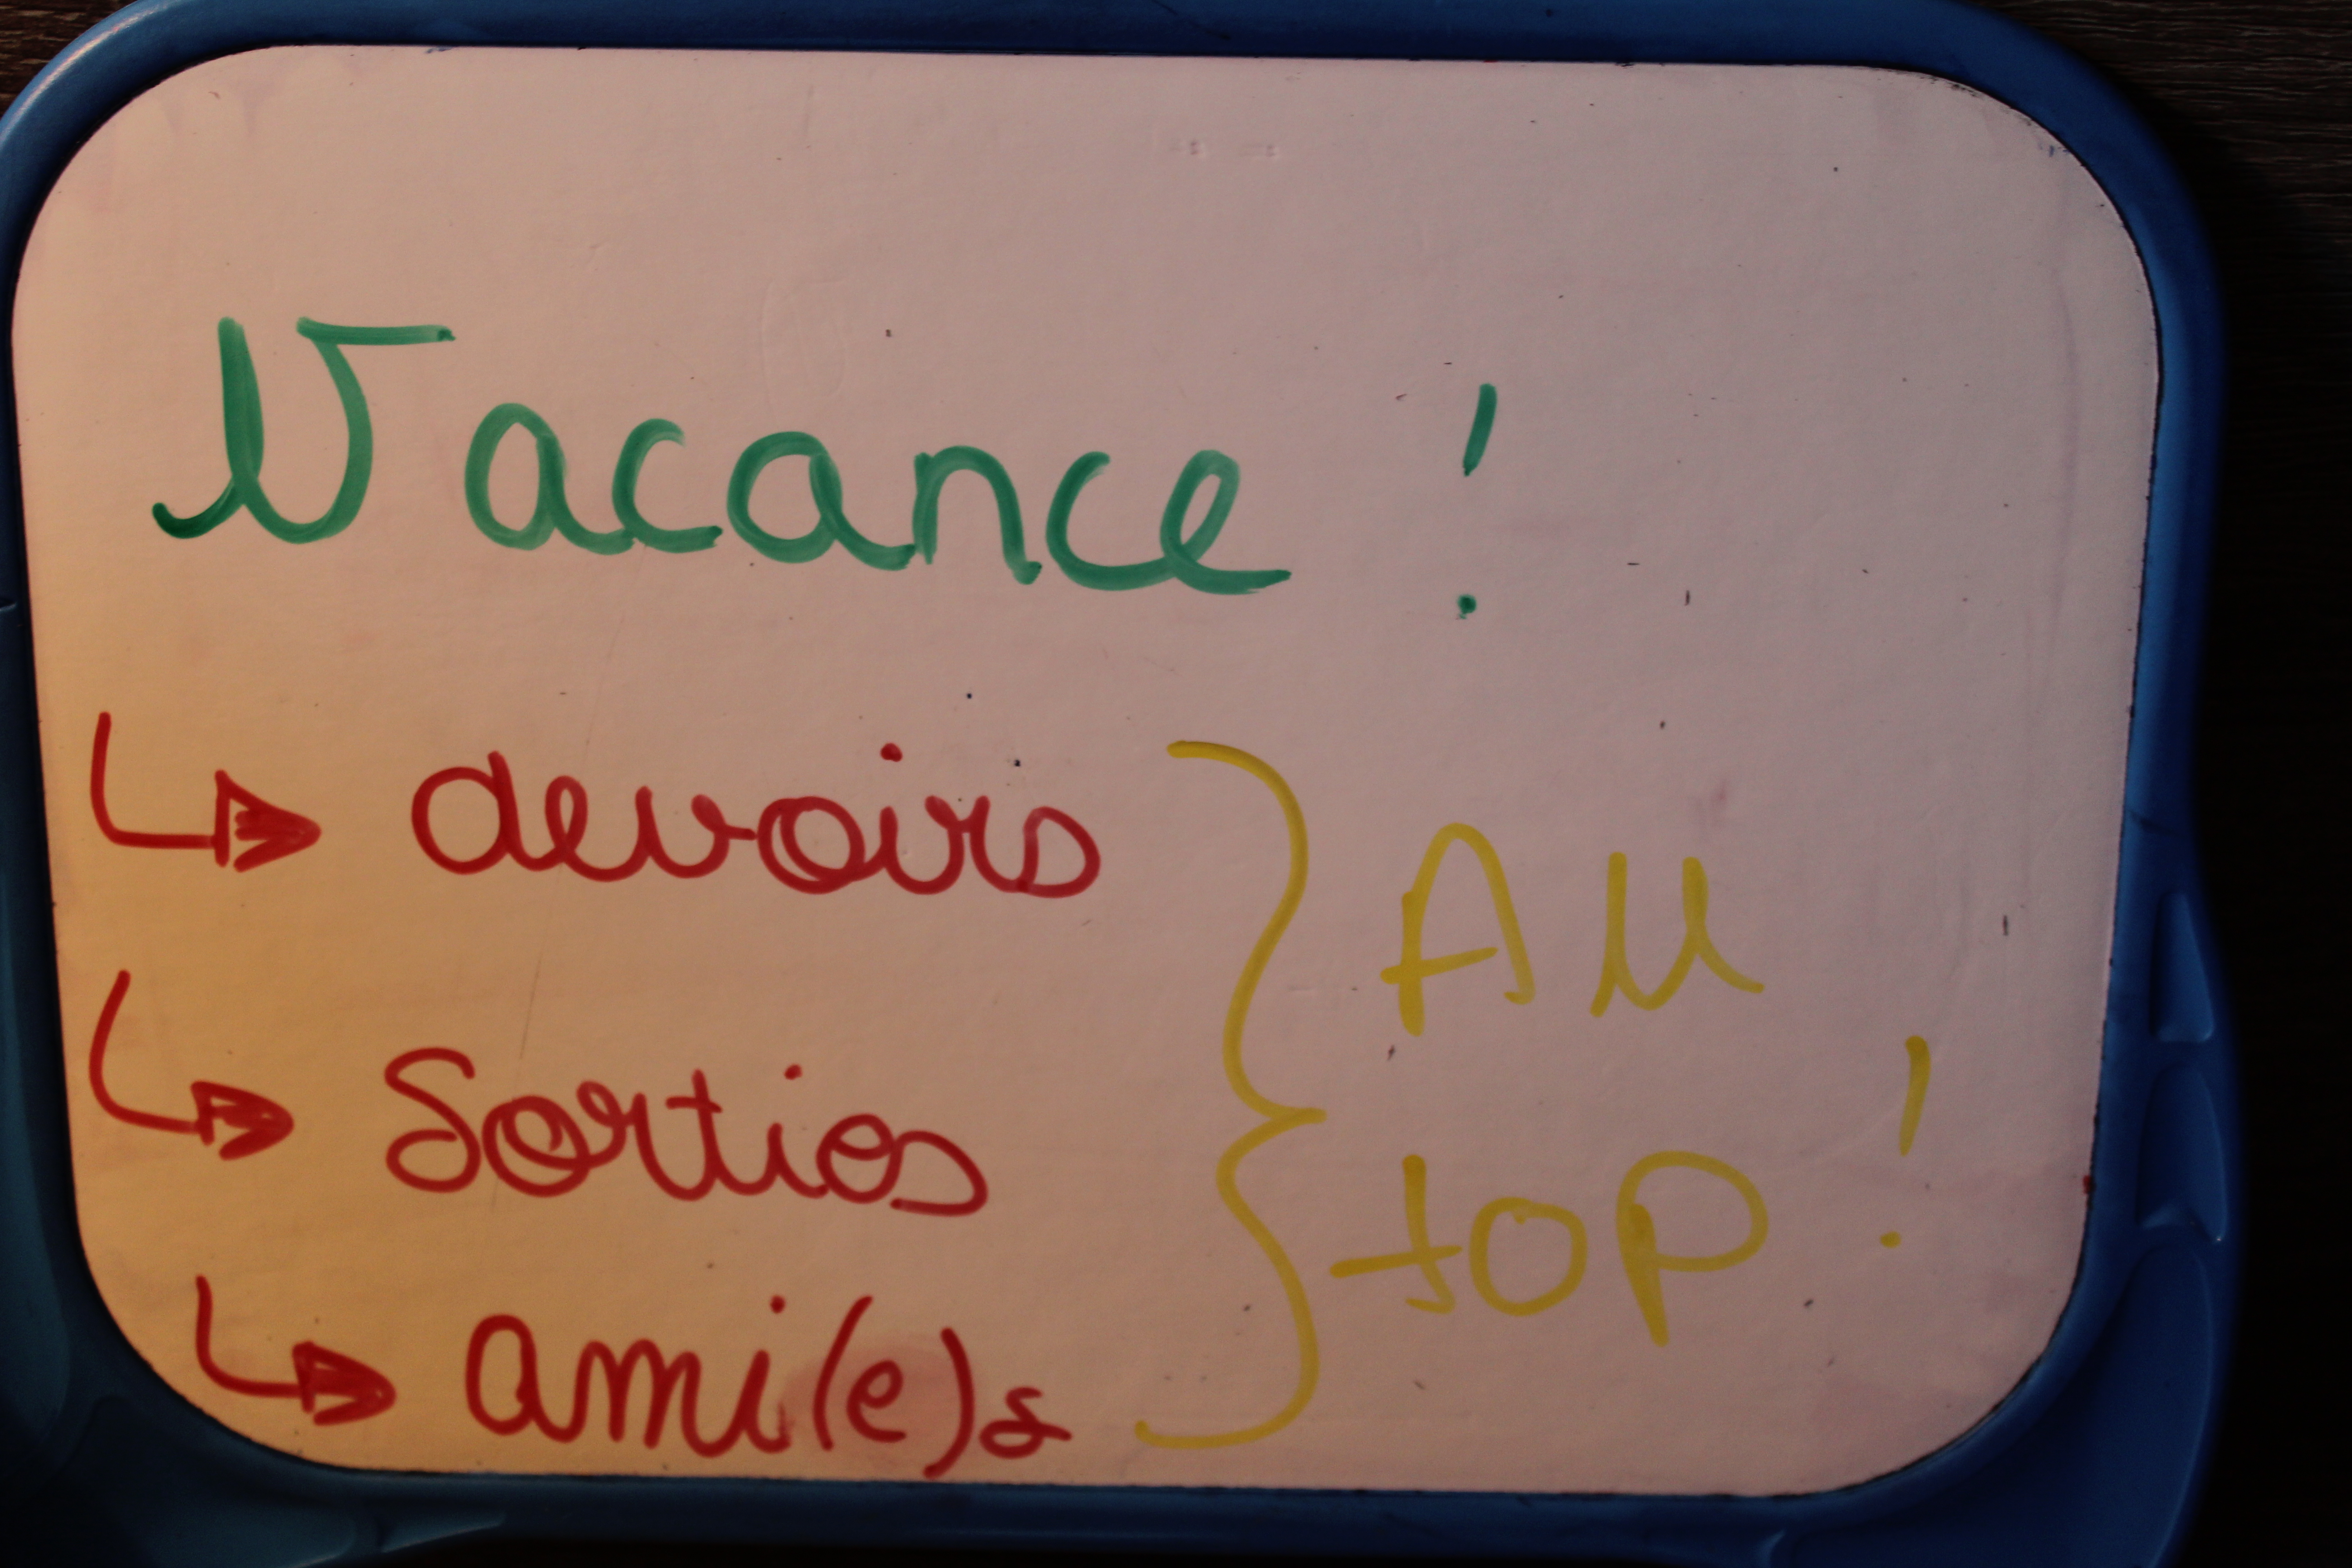 Vacance !
↳ devoirs
↳ Sorties
↳ ami(e)s
} Au
top !